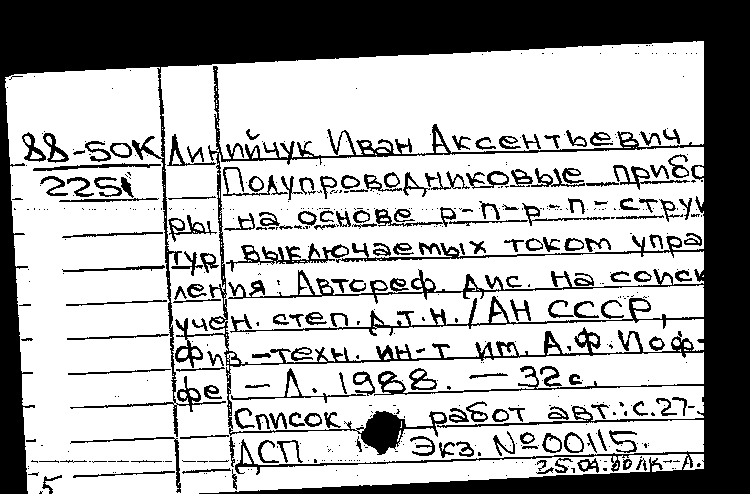 88-50К Линийчук, Иван Аксентьевич.
2251 Полупроводниковые прибо
ры на основе p-n-p-n-струк
тур, выключаемых током упра
ления: Автореф. дис. на соиск
учен. степ. д.т.н. / АН СССР,
Физ.-техн. ин-т им. А.Ф. Иоф-
фе – Л., 1988. – 32 с.
Список работ авт.: с. 27-
ДСП. Экз. № 00115.
5